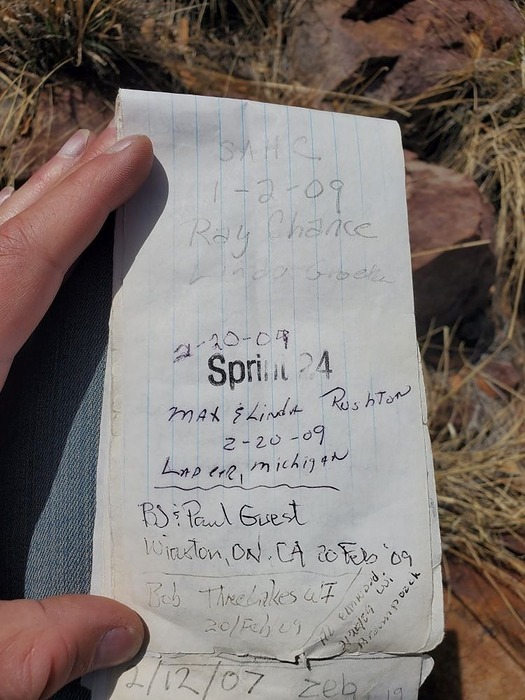 SAHC
1-2-09
Ray Chance
Linda
2-20-09
Sprint 24
MAX & LINDA RUSHTON
2-20-09
LAPEER, MICHIGAN
BJ & Paul Guest
Winston, ON. CA 20 Feb '09
Bob Three Lakes WI
20/Feb 09
2/12/07 Zeb